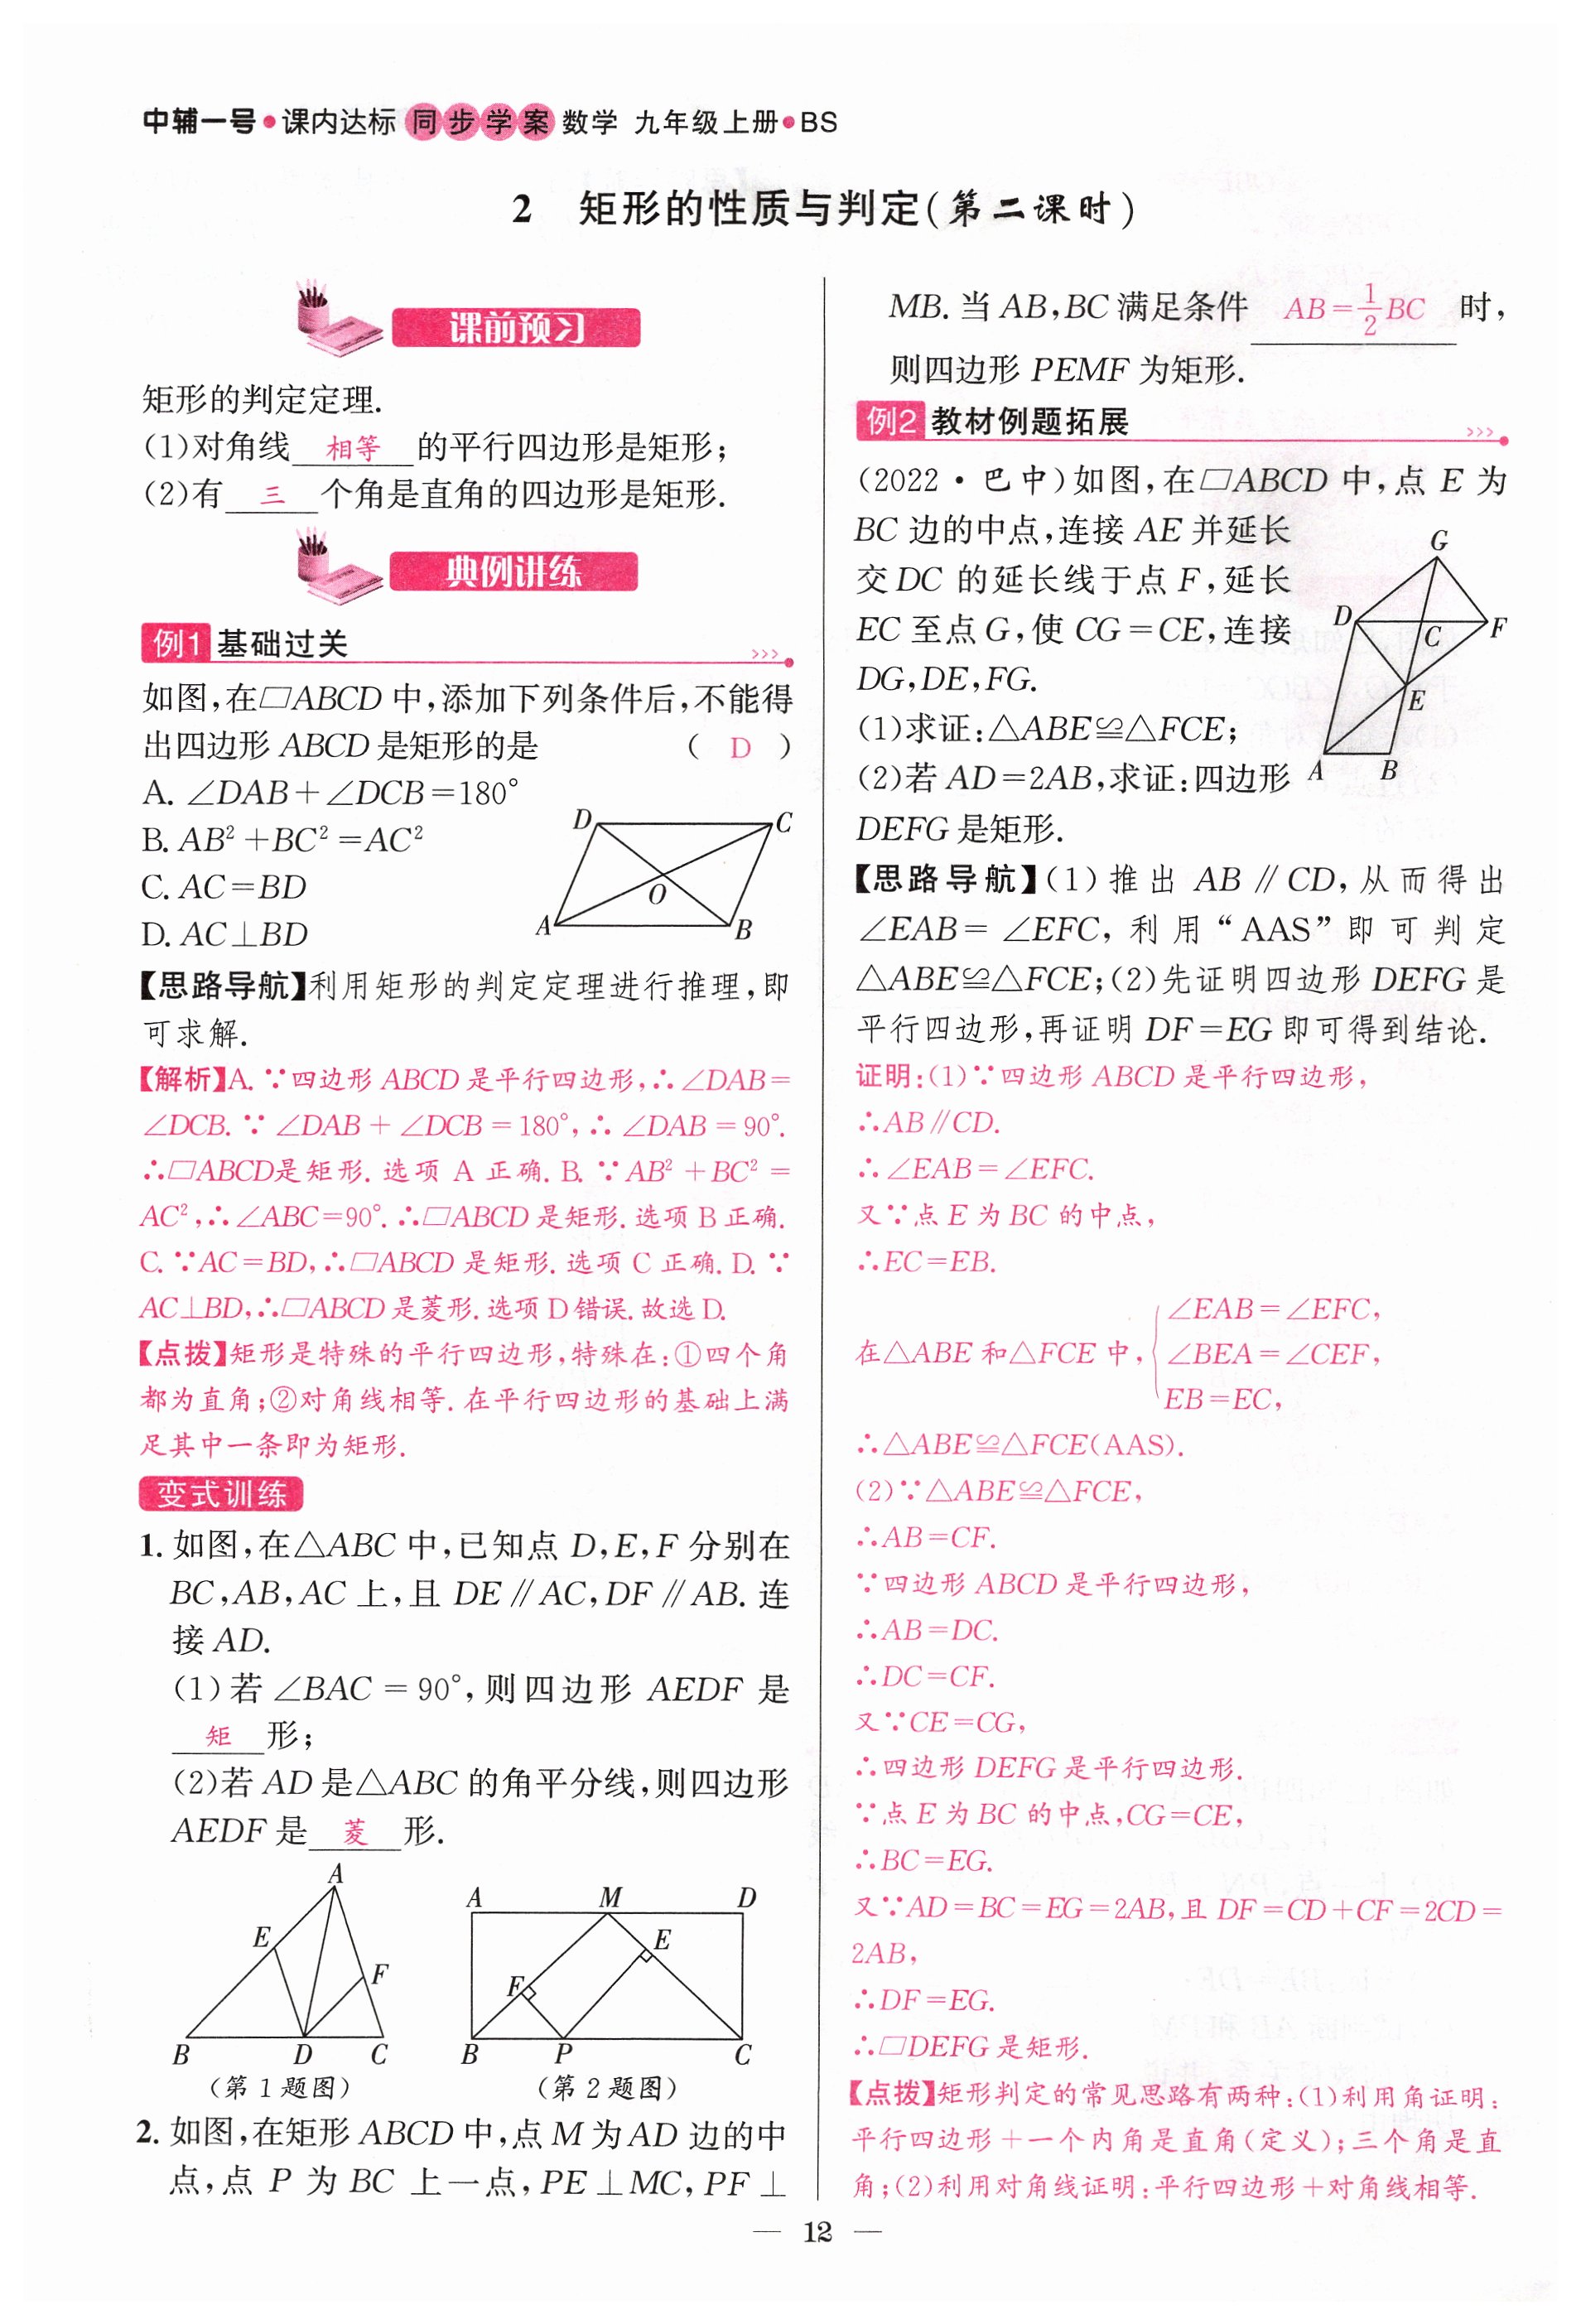 中辅一号·课内达标 同步学案 数学 九年级上册·BS
2 矩形的性质与判定(第二课时)
课前预习
矩形的判定定理.
(1)对角线 相等 的平行四边形是矩形;
(2)有 三 个角是直角的四边形是矩形.
典例讲练
例1 基础过关 >>>
如图,在▱ABCD 中,添加下列条件后,不能得
出四边形 ABCD 是矩形的是 ( D )
A. ∠DAB+∠DCB=180°
B. AB²+BC²=AC²
C. AC=BD
D. AC⊥BD
D C
O
A B
【思路导航】利用矩形的判定定理进行推理,即
可求解.
【解析】A. ∵四边形 ABCD 是平行四边形,∴∠DAB=
∠DCB. ∵ ∠DAB + ∠DCB = 180°, ∴ ∠DAB = 90°.
∴▱ABCD是矩形. 选项 A 正确. B. ∵ AB² + BC² =
AC²,∴∠ABC=90°. ∴▱ABCD 是矩形. 选项 B 正确.
C. ∵AC=BD,∴▱ABCD 是矩形. 选项 C 正确. D. ∵
AC⊥BD,∴▱ABCD 是菱形. 选项 D 错误. 故选 D.
【点拨】矩形是特殊的平行四边形,特殊在:①四个角
都为直角;②对角线相等. 在平行四边形的基础上满
足其中一条即为矩形.
变式训练
1. 如图,在△ABC 中,已知点 D,E,F 分别在
BC,AB,AC 上,且 DE∥AC,DF∥AB. 连
接 AD.
(1)若 ∠BAC = 90°,则四边形 AEDF 是
矩 形;
(2)若 AD 是△ABC 的角平分线,则四边形
AEDF 是 菱 形.
A
E
F
B D C
(第 1 题图)
A M D
E
F
B P C
(第 2 题图)
2. 如图,在矩形 ABCD 中,点 M 为 AD 边的中
点,点 P 为 BC 上一点,PE⊥MC,PF⊥
MB. 当 AB,BC 满足条件 AB=1/2BC 时,
则四边形 PEMF 为矩形.
例2 教材例题拓展 >>>
(2022·巴中)如图,在▱ABCD 中,点 E 为
BC 边的中点,连接 AE 并延长
交 DC 的延长线于点 F,延长
EC 至点 G,使 CG=CE,连接
DG,DE,FG.
(1)求证:△ABE≌△FCE;
(2)若 AD=2AB,求证:四边形
DEFG 是矩形.
G
D C F
E
A B
【思路导航】(1)推出 AB∥CD,从而得出
∠EAB= ∠EFC,利用“AAS”即可判定
△ABE≌△FCE;(2)先证明四边形 DEFG 是
平行四边形,再证明 DF=EG 即可得到结论.
证明:(1)∵四边形 ABCD 是平行四边形,
∴AB∥CD.
∴∠EAB=∠EFC.
又∵点 E 为 BC 的中点,
∴EC=EB.
∠EAB=∠EFC,
在△ABE 和△FCE 中, ∠BEA=∠CEF,
EB=EC,
∴△ABE≌△FCE(AAS).
(2)∵△ABE≌△FCE,
∴AB=CF.
∵四边形 ABCD 是平行四边形,
∴AB=DC.
∴DC=CF.
又∵CE=CG,
∴四边形 DEFG 是平行四边形.
∵点 E 为 BC 的中点,CG=CE,
∴BC=EG.
又∵AD=BC=EG=2AB,且 DF=CD+CF=2CD=
2AB,
∴DF=EG.
∴▱DEFG 是矩形.
【点拨】矩形判定的常见思路有两种:(1)利用角证明:
平行四边形+一个内角是直角(定义);三个角是直
角;(2)利用对角线证明:平行四边形+对角线相等.
— 12 —